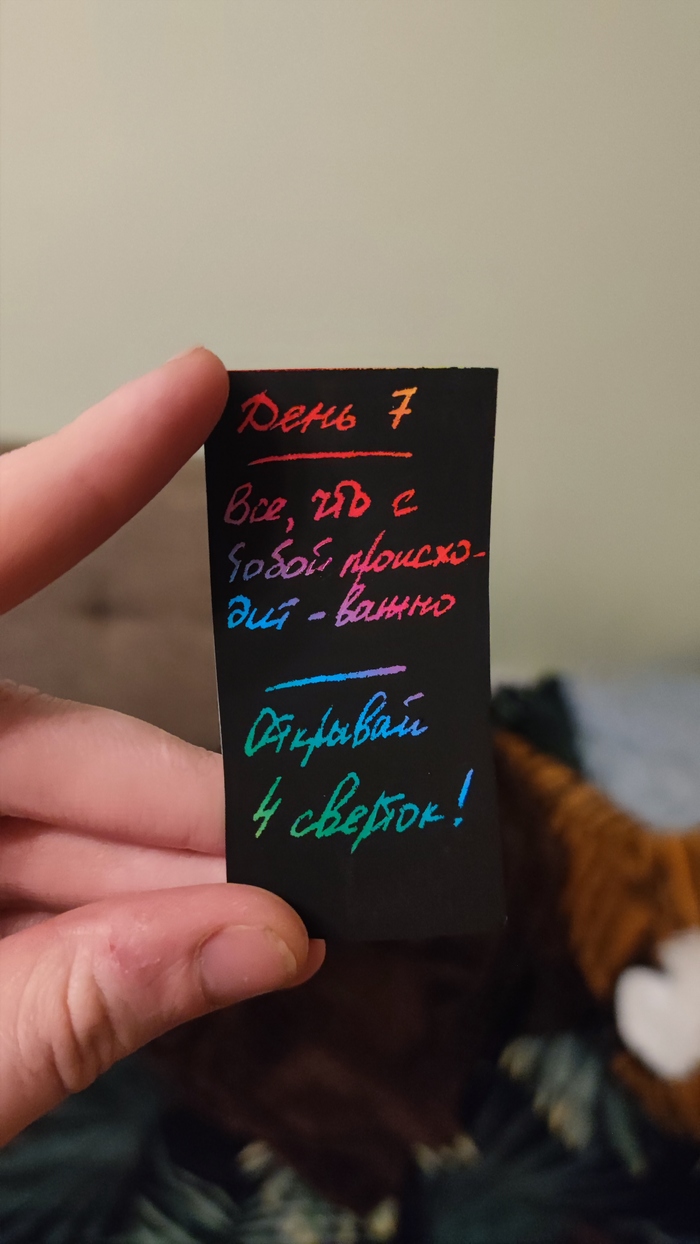 День 7
Все, что с
тобой происхо-
дит - важно
Открывай
4 сверток!